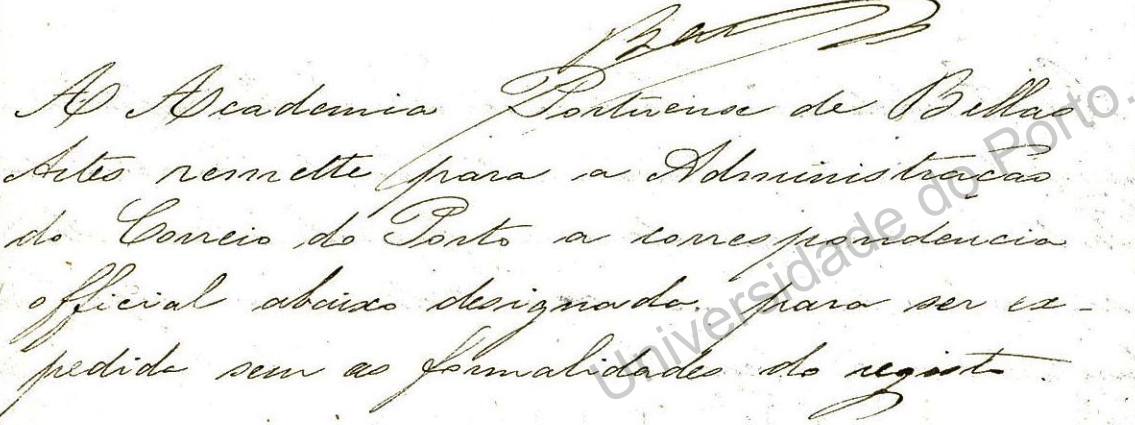 A Academia Portuense de Bellas
Artes remette para a Administração
do Correio do Porto a correspondencia
official abaixo designada. para ser ex-
pedida sem as formalidades do registo.
Universidade do Porto.